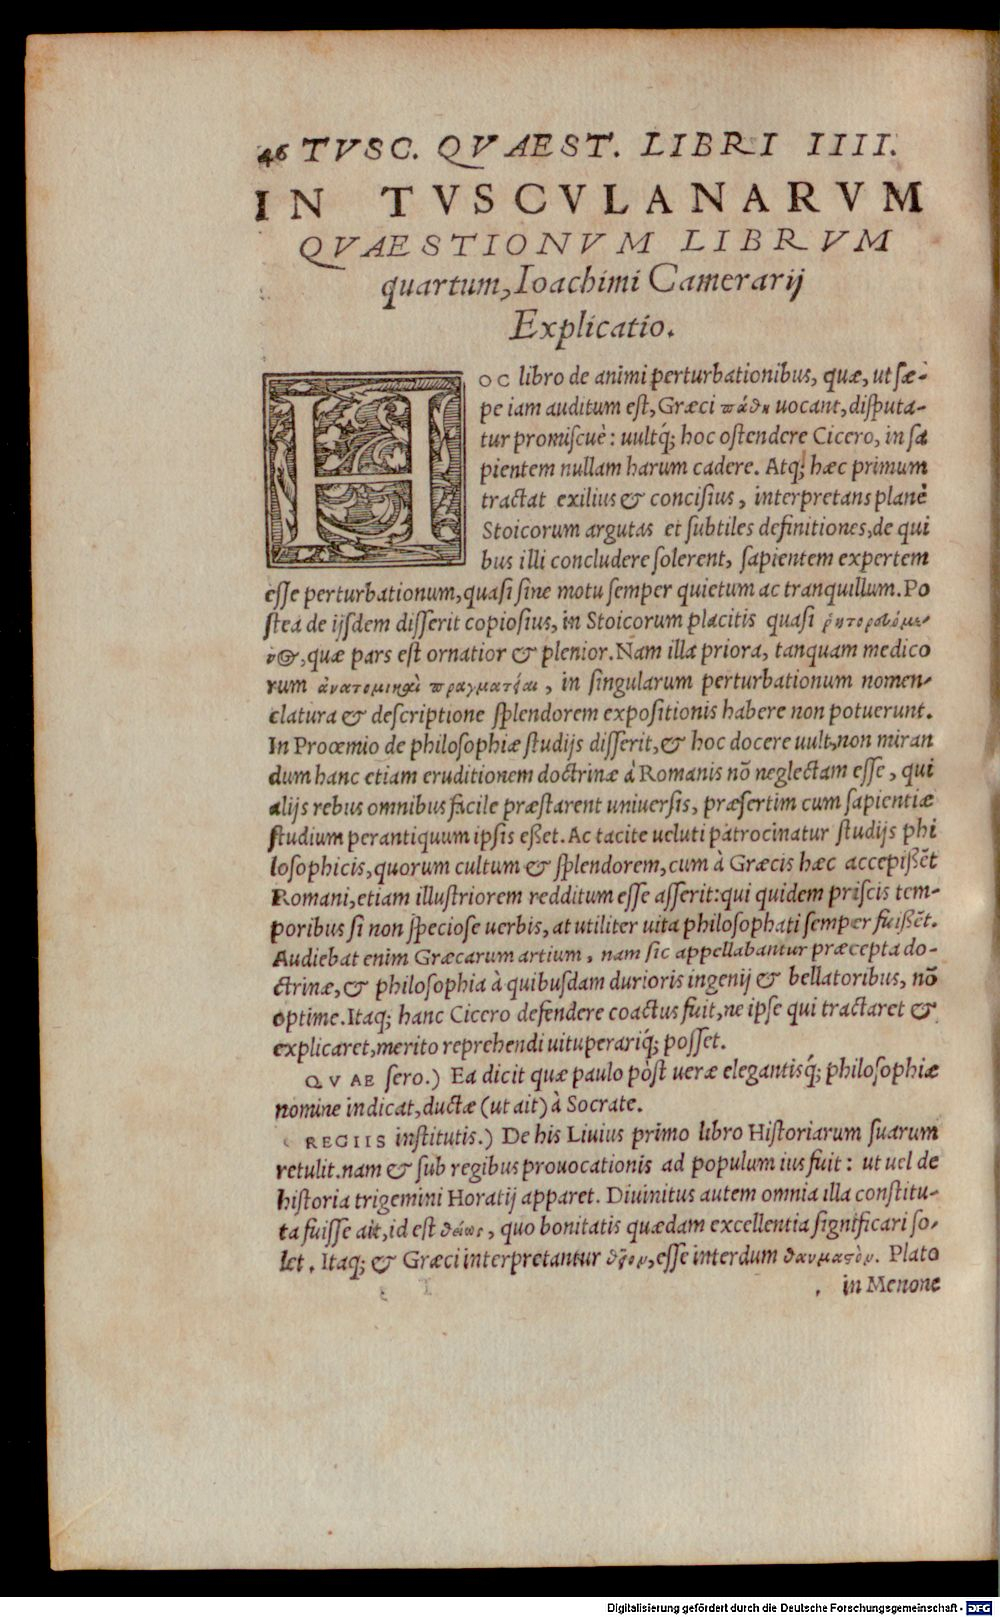 46 TVSC. QVAEST. LIBRI IIII.
IN TVSCVLANARVM
QVAESTIONVM LIBRVM
quartum, Ioachimi Camerarij
Explicatio.
HOC libro de animi perturbationibus, quæ, ut sæ-
pe iam auditum est, Græci πάθη uocant, disputa-
tur promiscuè: uultq́; hoc ostendere Cicero, in sa
pientem nullam harum cadere. Atq; hæc primum
tractat exilius & concisius, interpretans planè
Stoicorum argutas et subtiles definitiones, de qui
bus illi concludere solerent, sapientem expertem
esse perturbationum, quasi sine motu semper quietum ac tranquillum. Po
stea de ijsdem disserit copiosius, in Stoicorum placitis quasi ῥητορευόμε-
νος, quæ pars est ornatior & plenior. Nam illa priora, tanquam medico
rum ἀνατομικαὶ πραγματεῖαι, in singularum perturbationum nomen-
clatura & descriptione splendorem expositionis habere non potuerunt.
In Proœmio de philosophiæ studijs disserit, & hoc docere uult, non miran
dum hanc etiam eruditionem doctrinæ à Romanis nõ neglectam esse, qui
alijs rebus omnibus facile præstarent uniuersis, præsertim cum sapientiæ
studium perantiquum ipsis eßet. Ac tacite ueluti patrocinatur studijs phi
losophicis, quorum cultum & splendorem, cum à Græcis hæc accepißẽt
Romani, etiam illustriorem redditum esse asserit: qui quidem priscis tem-
poribus si non speciose uerbis, at utiliter uita philosophati semper fuißẽt.
Audiebat enim Græcarum artium, nam sic appellabantur præcepta do-
ctrinæ, & philosophia à quibusdam durioris ingenij & bellatoribus, nõ
optime. Itaq; hanc Cicero defendere coactus fuit, ne ipse qui tractaret &
explicaret, merito reprehendi uituperariq́; posset.
QVAE sero.) Ea dicit quæ paulo pòst ueræ elegantisq́; philosophiæ
nomine indicat, ductæ (ut ait) à Socrate.
REGIIS institutis.) De his Liuius primo libro Historiarum suarum
retulit. nam & sub regibus prouocationis ad populum ius fuit: ut uel de
historia trigemini Horatij apparet. Diuinitus autem omnia illa constitu-
ta fuisse ait, id est θείως, quo bonitatis quædam excellentia significari so-
let. Itaq; & Græci interpretantur θεῖον, esse interdum θαυμαστὸν. Plato
in Menone
Digitalisierung gefördert durch die Deutsche Forschungsgemeinschaft - DFG